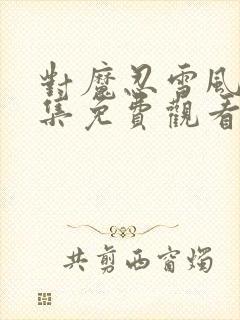 對魔忍雪風
集免費觀看
共剪西窗燭